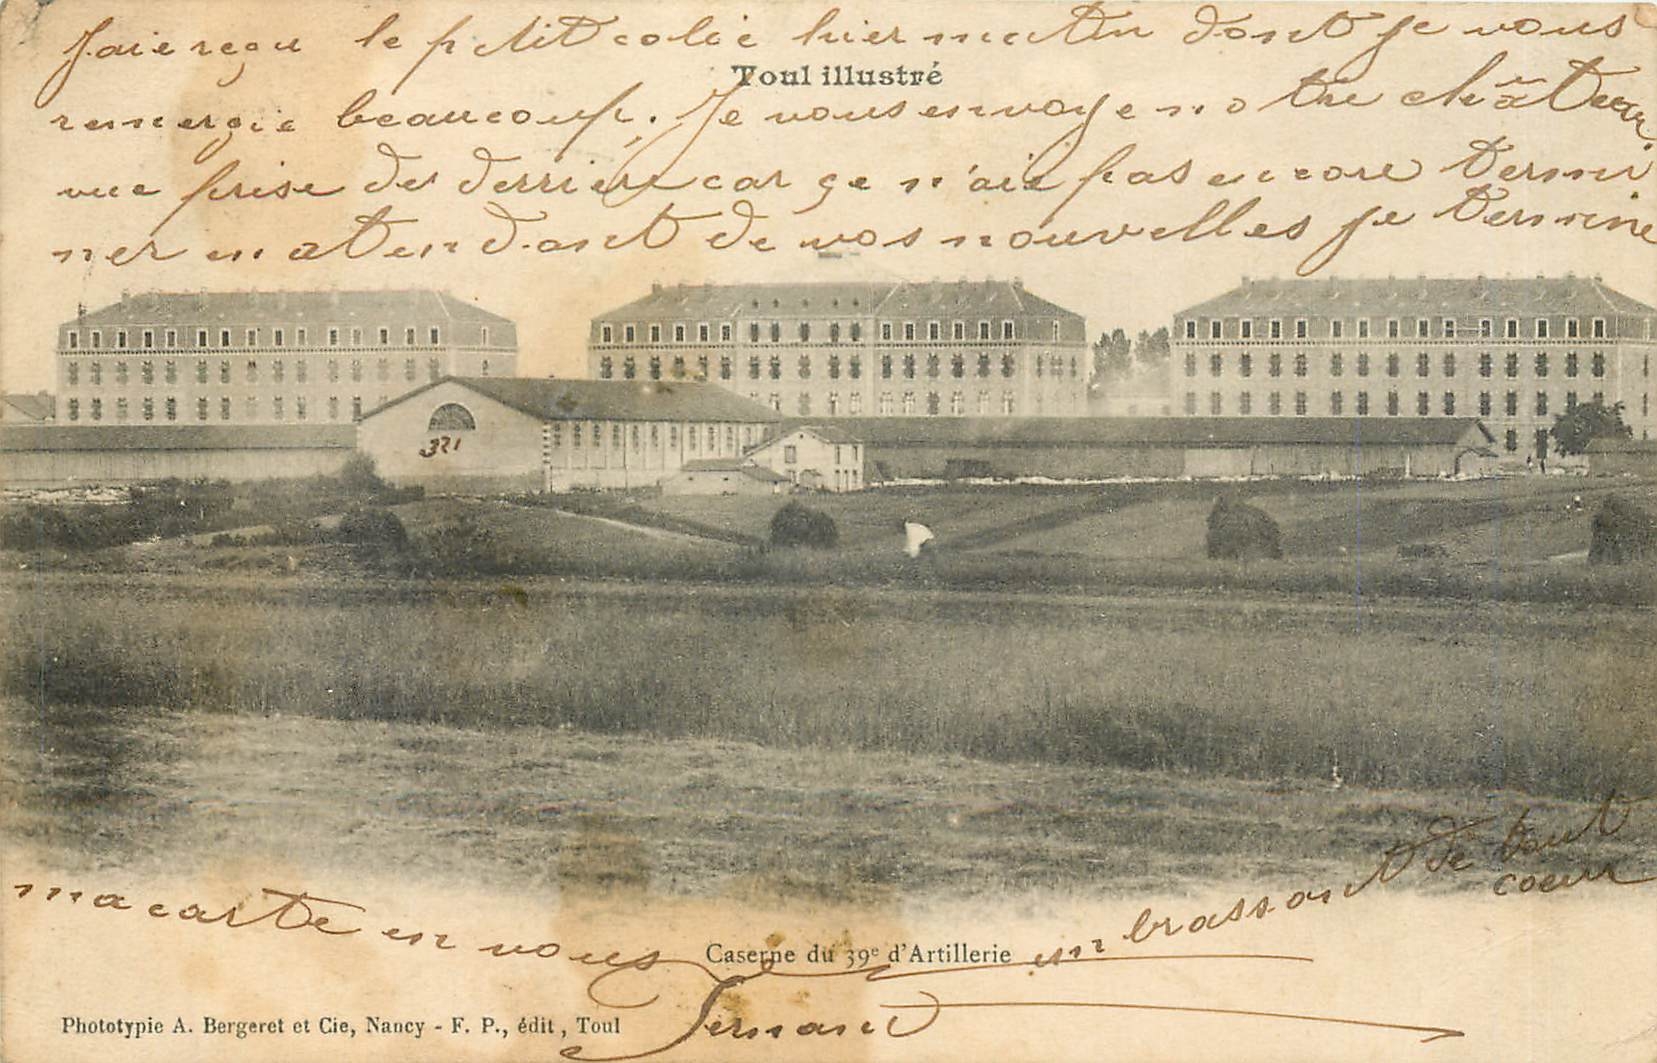 J'aie reçu le petit colie hier matin dont je vous
Toul illustré
remercie beaucoup. Je vous envoye notre château
vue prise der derrière car ge n'aie pas encore termi
ner en atendant de vos nouvelles je termine
321
ma carte en vous embrassant de tout
coeur
Caserne du 39e d'Artillerie
Fernand
Phototypie A. Bergeret et Cie, Nancy - F. P., édit, Toul